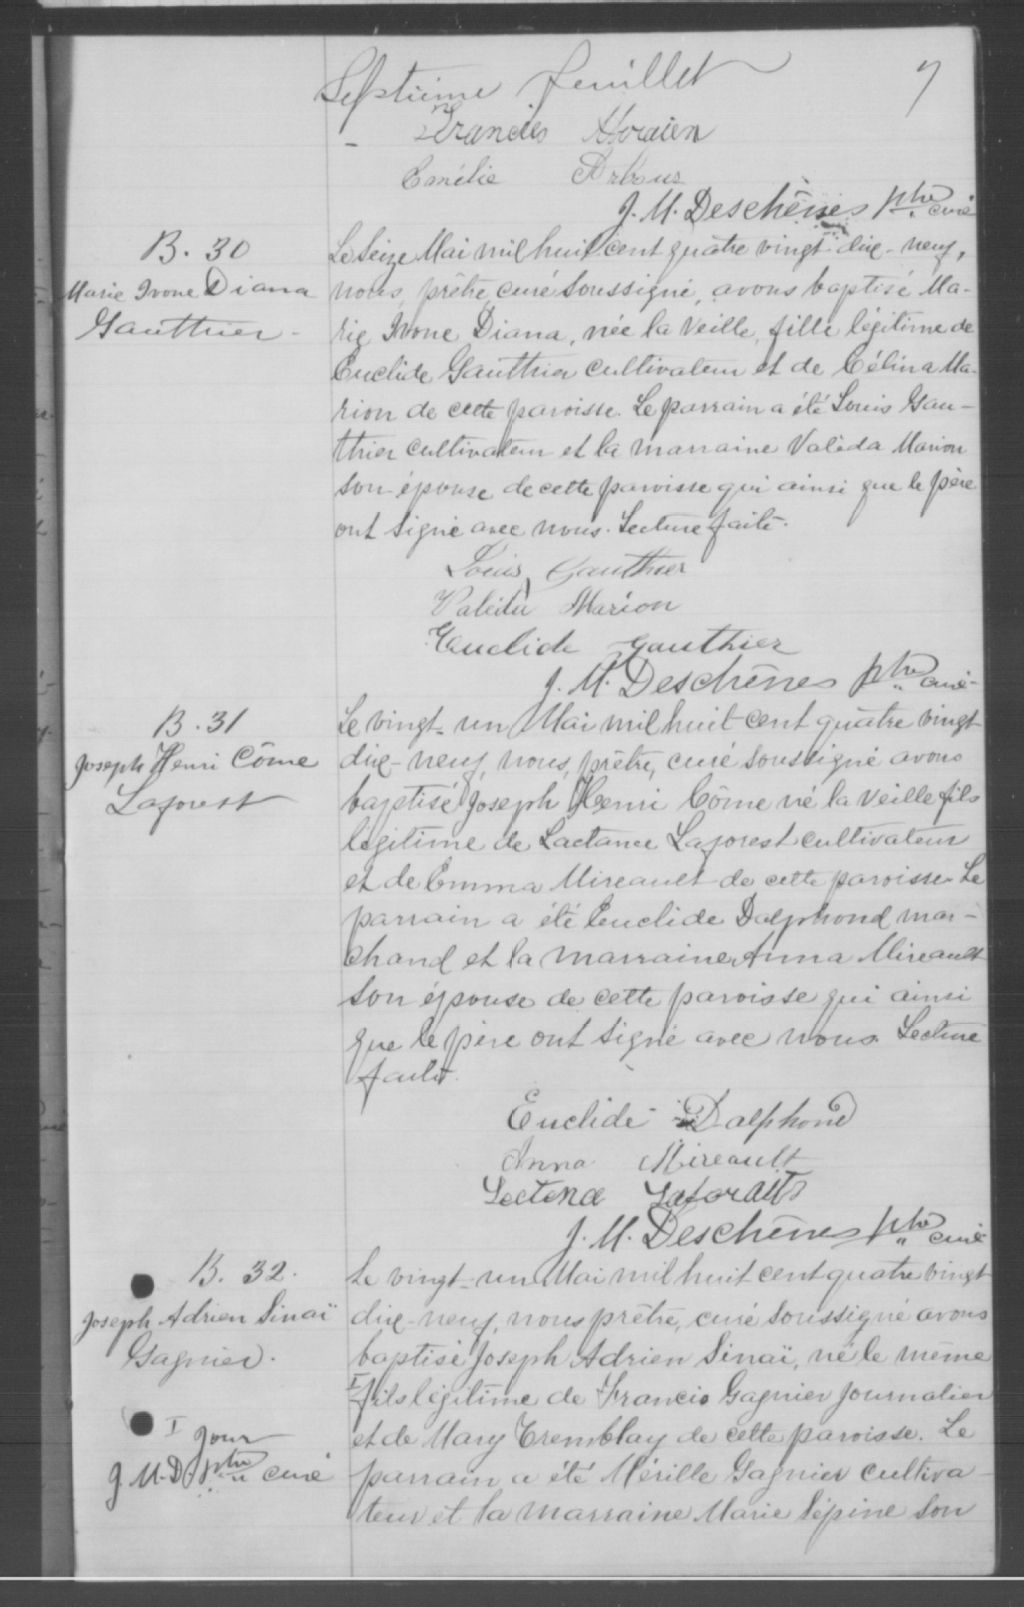 Septième feuillet 7
Francis
Emélie Arbour
J. M. Deschênes ptre curé
B. 30
Marie Ivone Diana
Gauthier
Le Seize Mai mil huit cent quatre vingt-dix-neuf,
nous, prêtre curé soussigné, avons baptisé Ma-
rie Ivone Diana, née la veille, fille légitime de
Euclide Gauthier cultivateur et de Célina Ma-
rion de cette paroisse. Le parrain a été Louis Gau-
thier cultivateur et la marraine Valéda Marion
son épouse de cette paroisse qui ainsi que le père
ont signé avec nous. Lecture faite.
Louis Gauthier
Valéda Marion
Euclide Gauthier
J. M. Deschênes ptre curé
B. 31
Joseph Henri Côme
Laforest
Le vingt-un Mai mil huit cent quatre vingt
dix-neuf, nous, prêtre, curé soussigné avons
baptisé Joseph Henri Côme né la veille fils
légitime de Lactance Laforest cultivateur
et de Emma Mireault de cette paroisse. Le
parrain a été Euclide Dalphond mar-
chand et la marraine Anna Mireault
son épouse de cette paroisse qui ainsi
que le père ont signé avec nous. Lecture
faite.
Euclide Dalphond
Anna Mireault
J. M. Deschênes ptre curé
B. 32.
Joseph Adrien Sinaï
Gagnier.
Le vingt-un Mai mil huit cent quatre vingt
dix-neuf, nous prêtre, curé soussigné avons
baptisé Joseph Adrien Sinaï, né le même
I fils légitime de Francis Gagnier journalier
et de Mary Tremblay de cette paroisse. Le
parrain a été Mérille Gagnier cultiva-
teur et la marraine Marie Lépine son
I jour
J. M. D. ptre curé